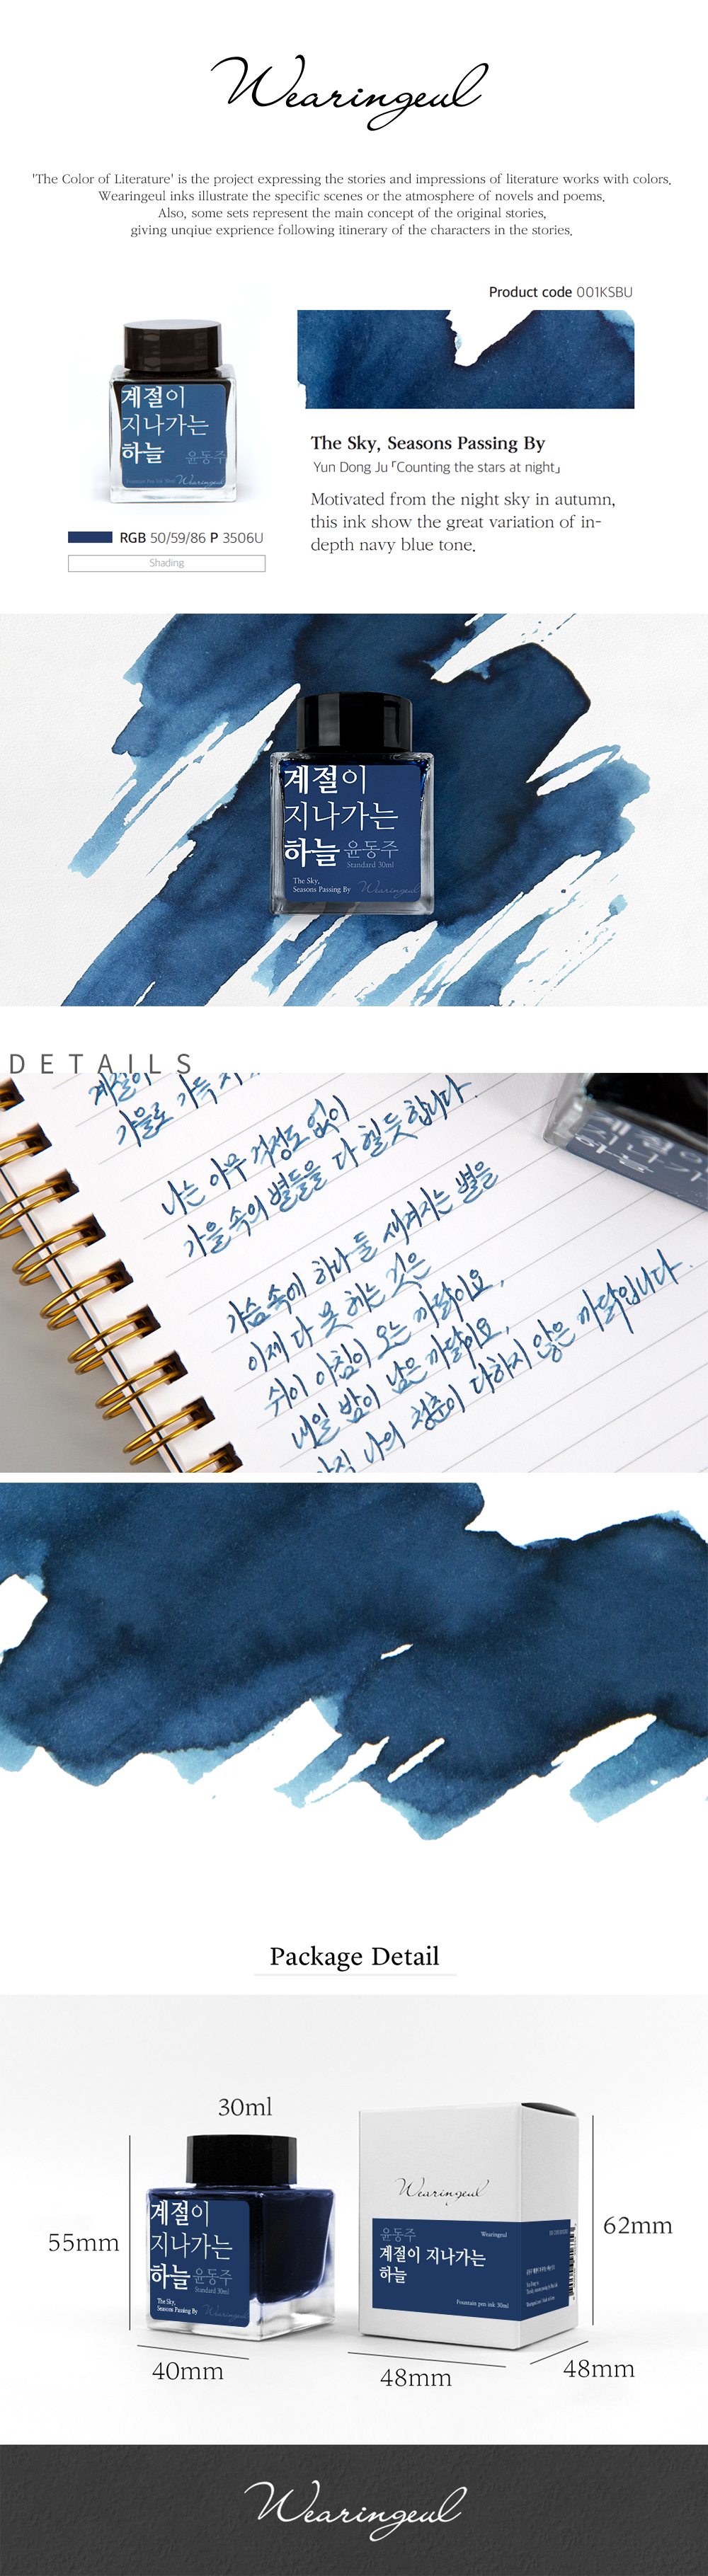 Wearingeul
'The Color of Literature' is the project expressing the stories and impressions of literature works with colors.
Wearingeul inks illustrate the specific scenes or the atmosphere of novels and poems.
Also, some sets represent the main concept of the original stories,
giving unqiue exprience following itinerary of the characters in the stories.
Product code 001KSBU
계절이
지나가는
하늘 윤동주
Fountain Pen Ink 30ml Wearingeul
RGB 50/59/86 P 3506U
Shading
The Sky, Seasons Passing By
Yun Dong Ju「Counting the stars at night」
Motivated from the night sky in autumn,
this ink show the great variation of in-
depth navy blue tone.
계절이
지나가는
하늘 윤동주
Standard 30ml
The Sky,
Seasons Passing By Wearingeul
DETAILS
계절이
가을로 가득 차
나는 아무 걱정도 없이
가을 속의 별들을 다 헬듯합니다.
가슴속에 하나 둘 새겨지는 별을
이제 다 못 헤는 것은
쉬이 아침이 오는 까닭이요,
내일 밤이 남은 까닭이요,
아직 나의 청춘이 다하지 않은 까닭입니다.
Package Detail
30ml
55mm
40mm
계절이
지나가는
하늘 윤동주
Standard 30ml
The Sky,
Seasons Passing By Wearingeul
Wearingeul
윤동주 Wearingeul
계절이 지나가는
하늘
Fountain pen ink 30ml
62mm
48mm
48mm
Wearingeul